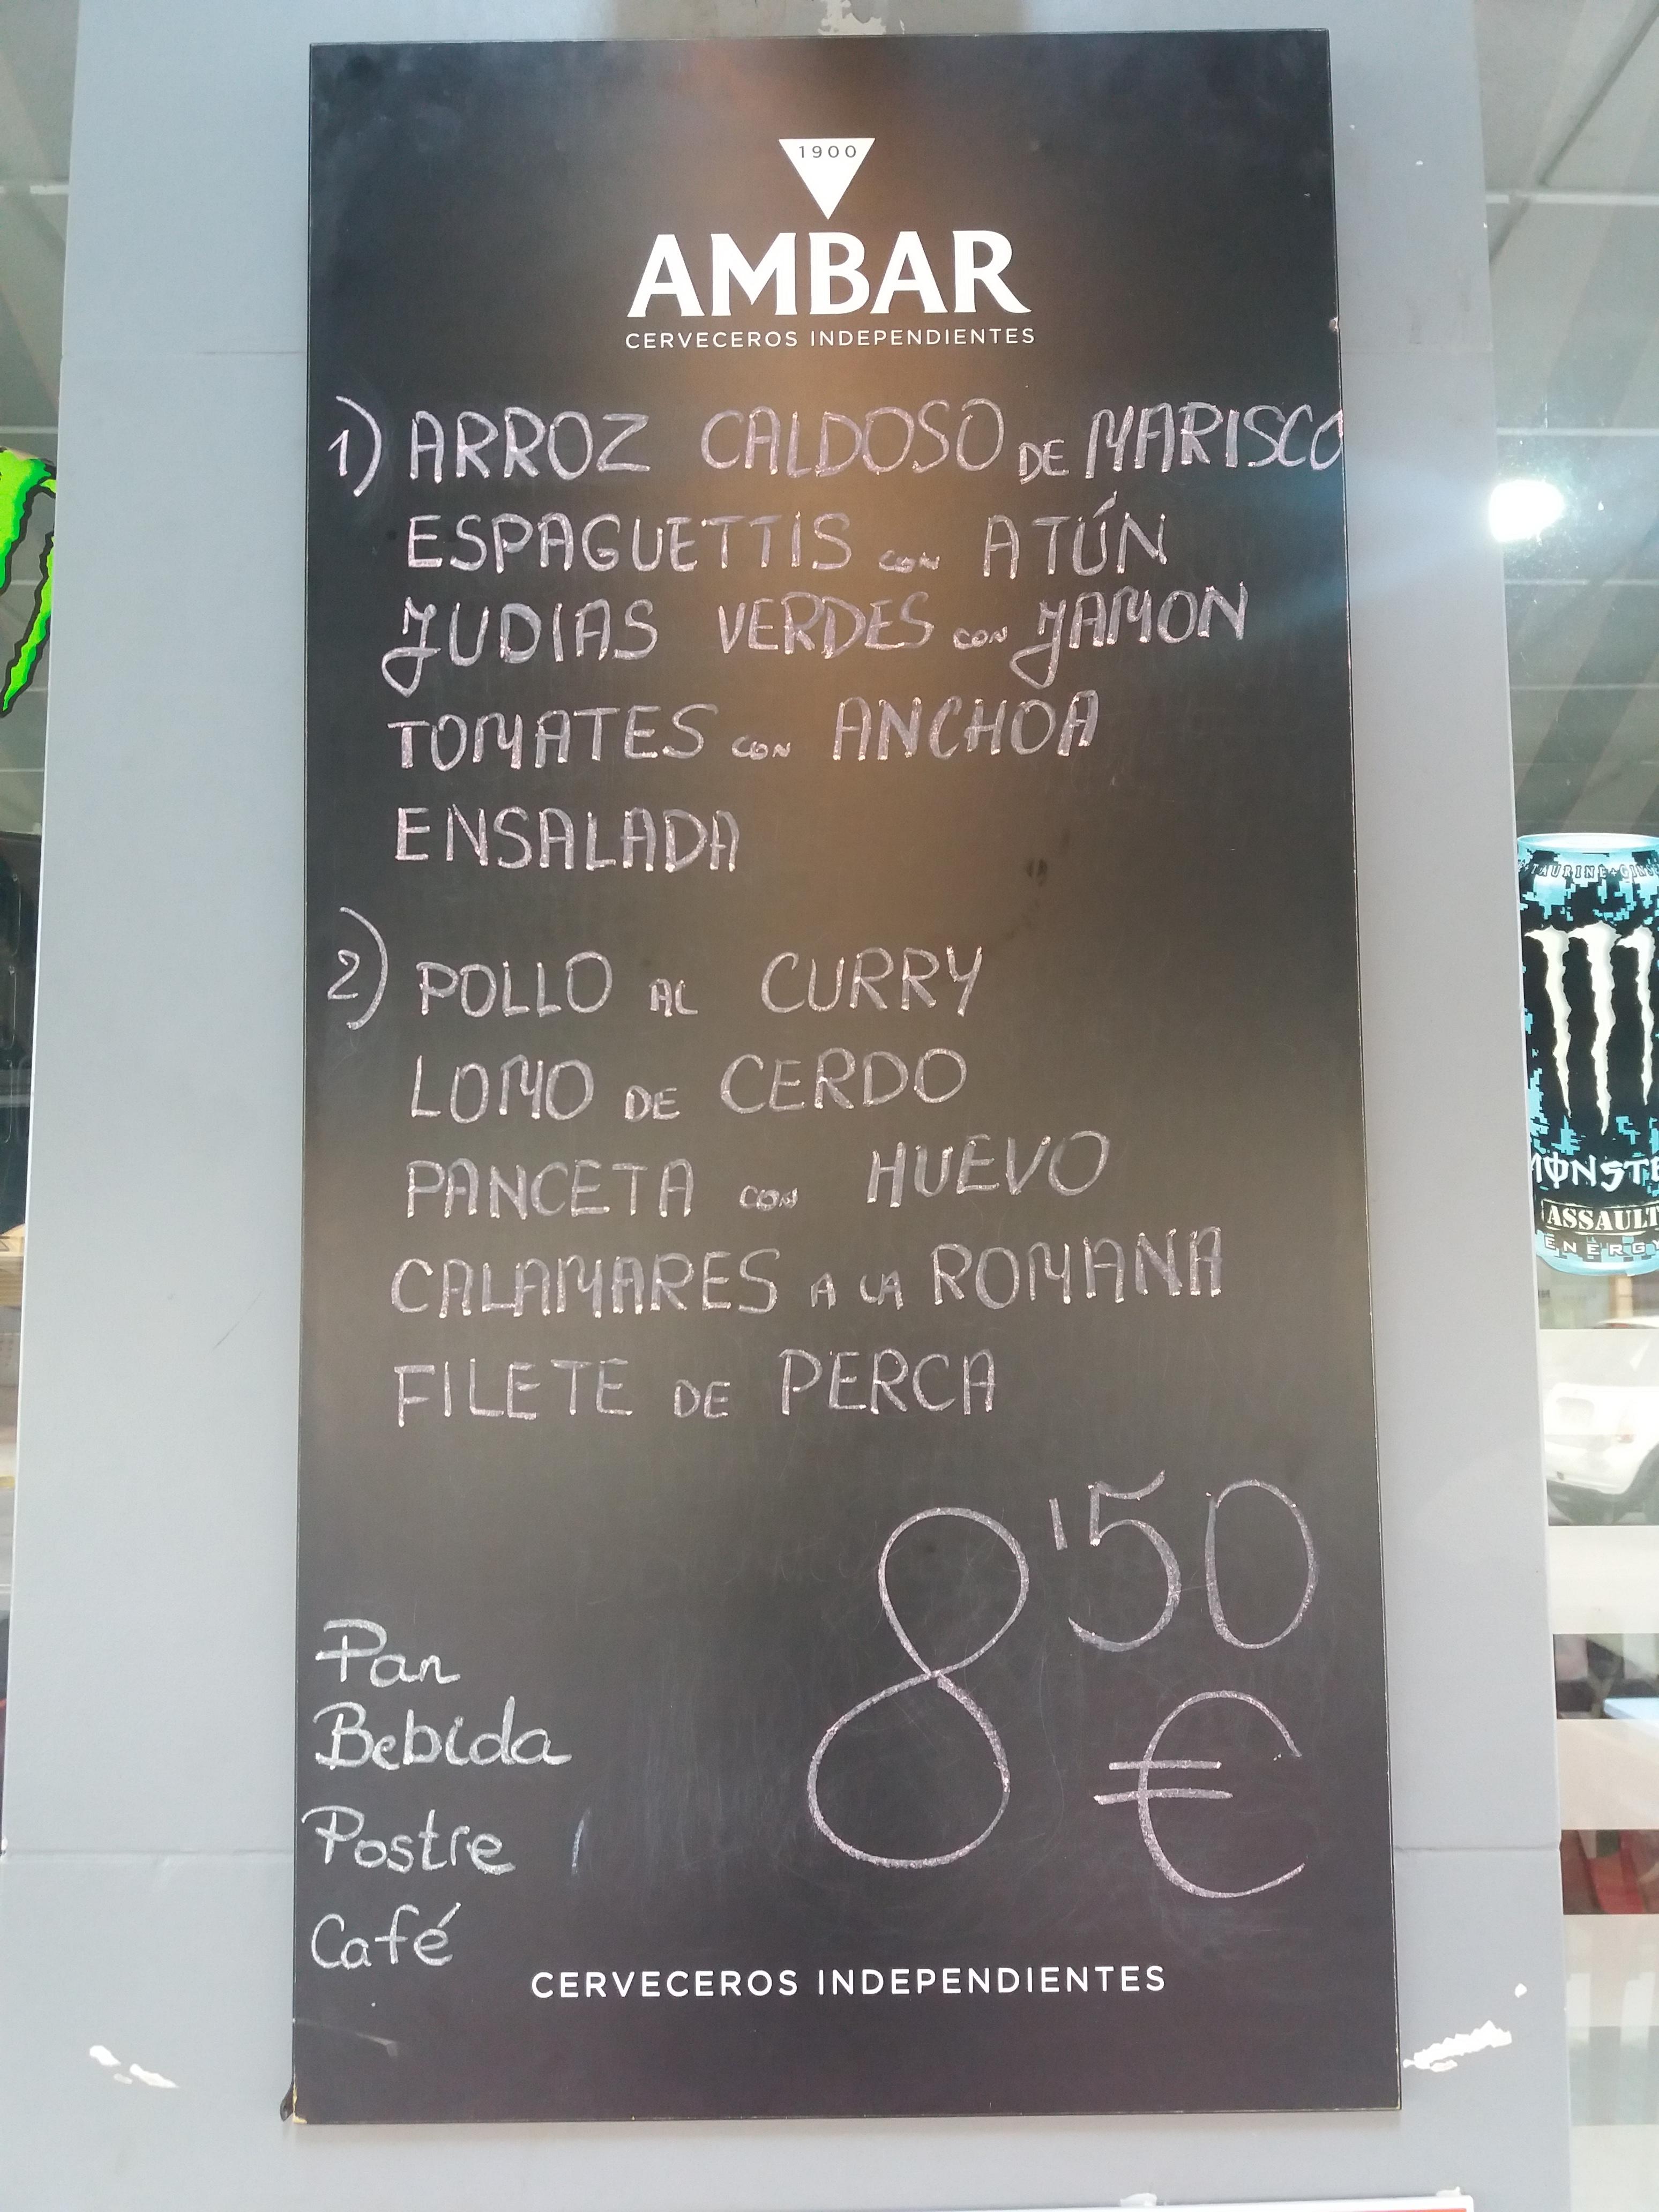 1900
AMBAR
CERVECEROS INDEPENDIENTES
1) ARROZ CALDOSO DE MARISCO
ESPAGUETTIS CON ATÚN
JUDIAS VERDES CON JAMON
TOMATES CON ANCHOA
ENSALADA
2) POLLO AL CURRY
LOMO DE CERDO
PANCETA CON HUEVO
CALAMARES A LA ROMANA
FILETE DE PERCA
8'50
€
Pan
Bebida
Postre
Café
CERVECEROS INDEPENDIENTES
TAURINE+GINS
MONSTE
ASSAULT
ENERGY